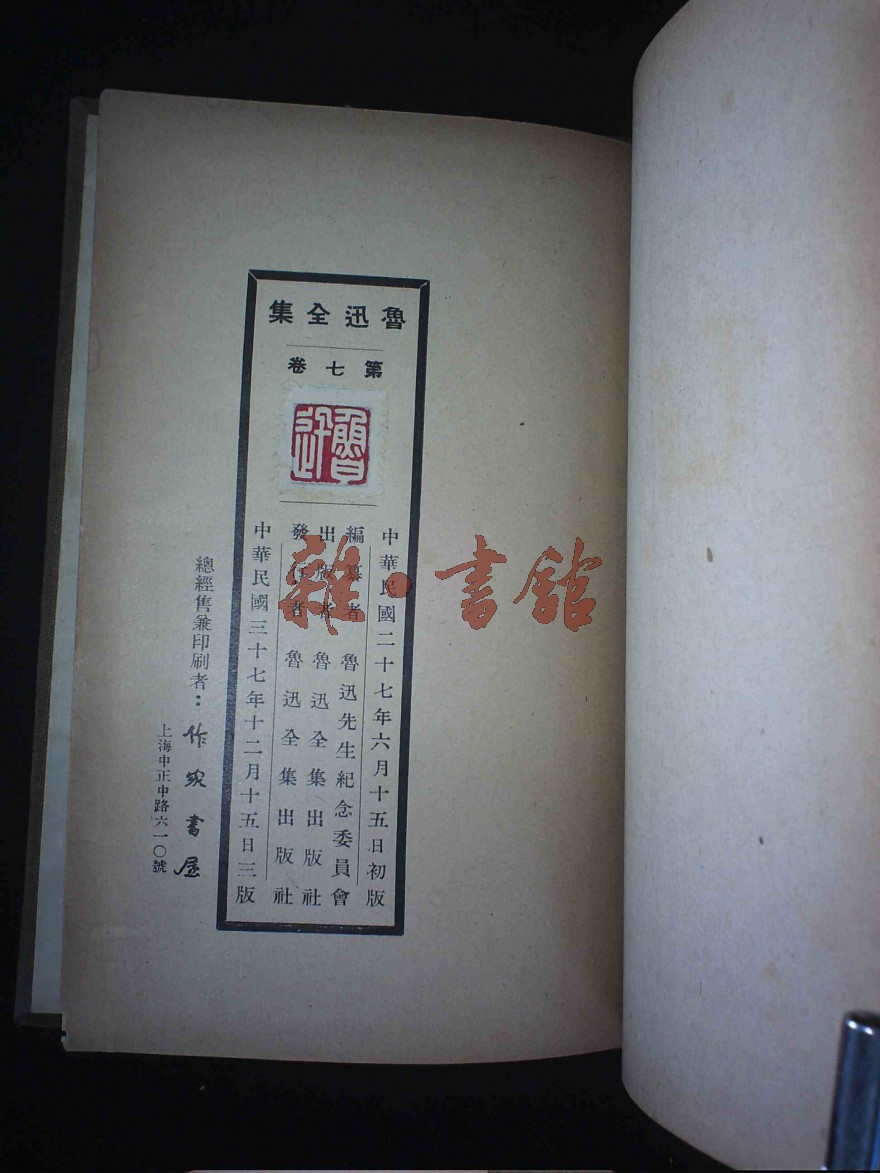 魯迅全集
第七卷
魯迅
中華民國二十七年六月十五日初版
編纂者 魯迅先生紀念委員會
出版者 魯迅全集出版社
發行者 魯迅全集出版社
中華民國三十七年十二月十五日三版
總經售兼印刷者：作家書屋
上海中正中路六一〇號
雜·書館